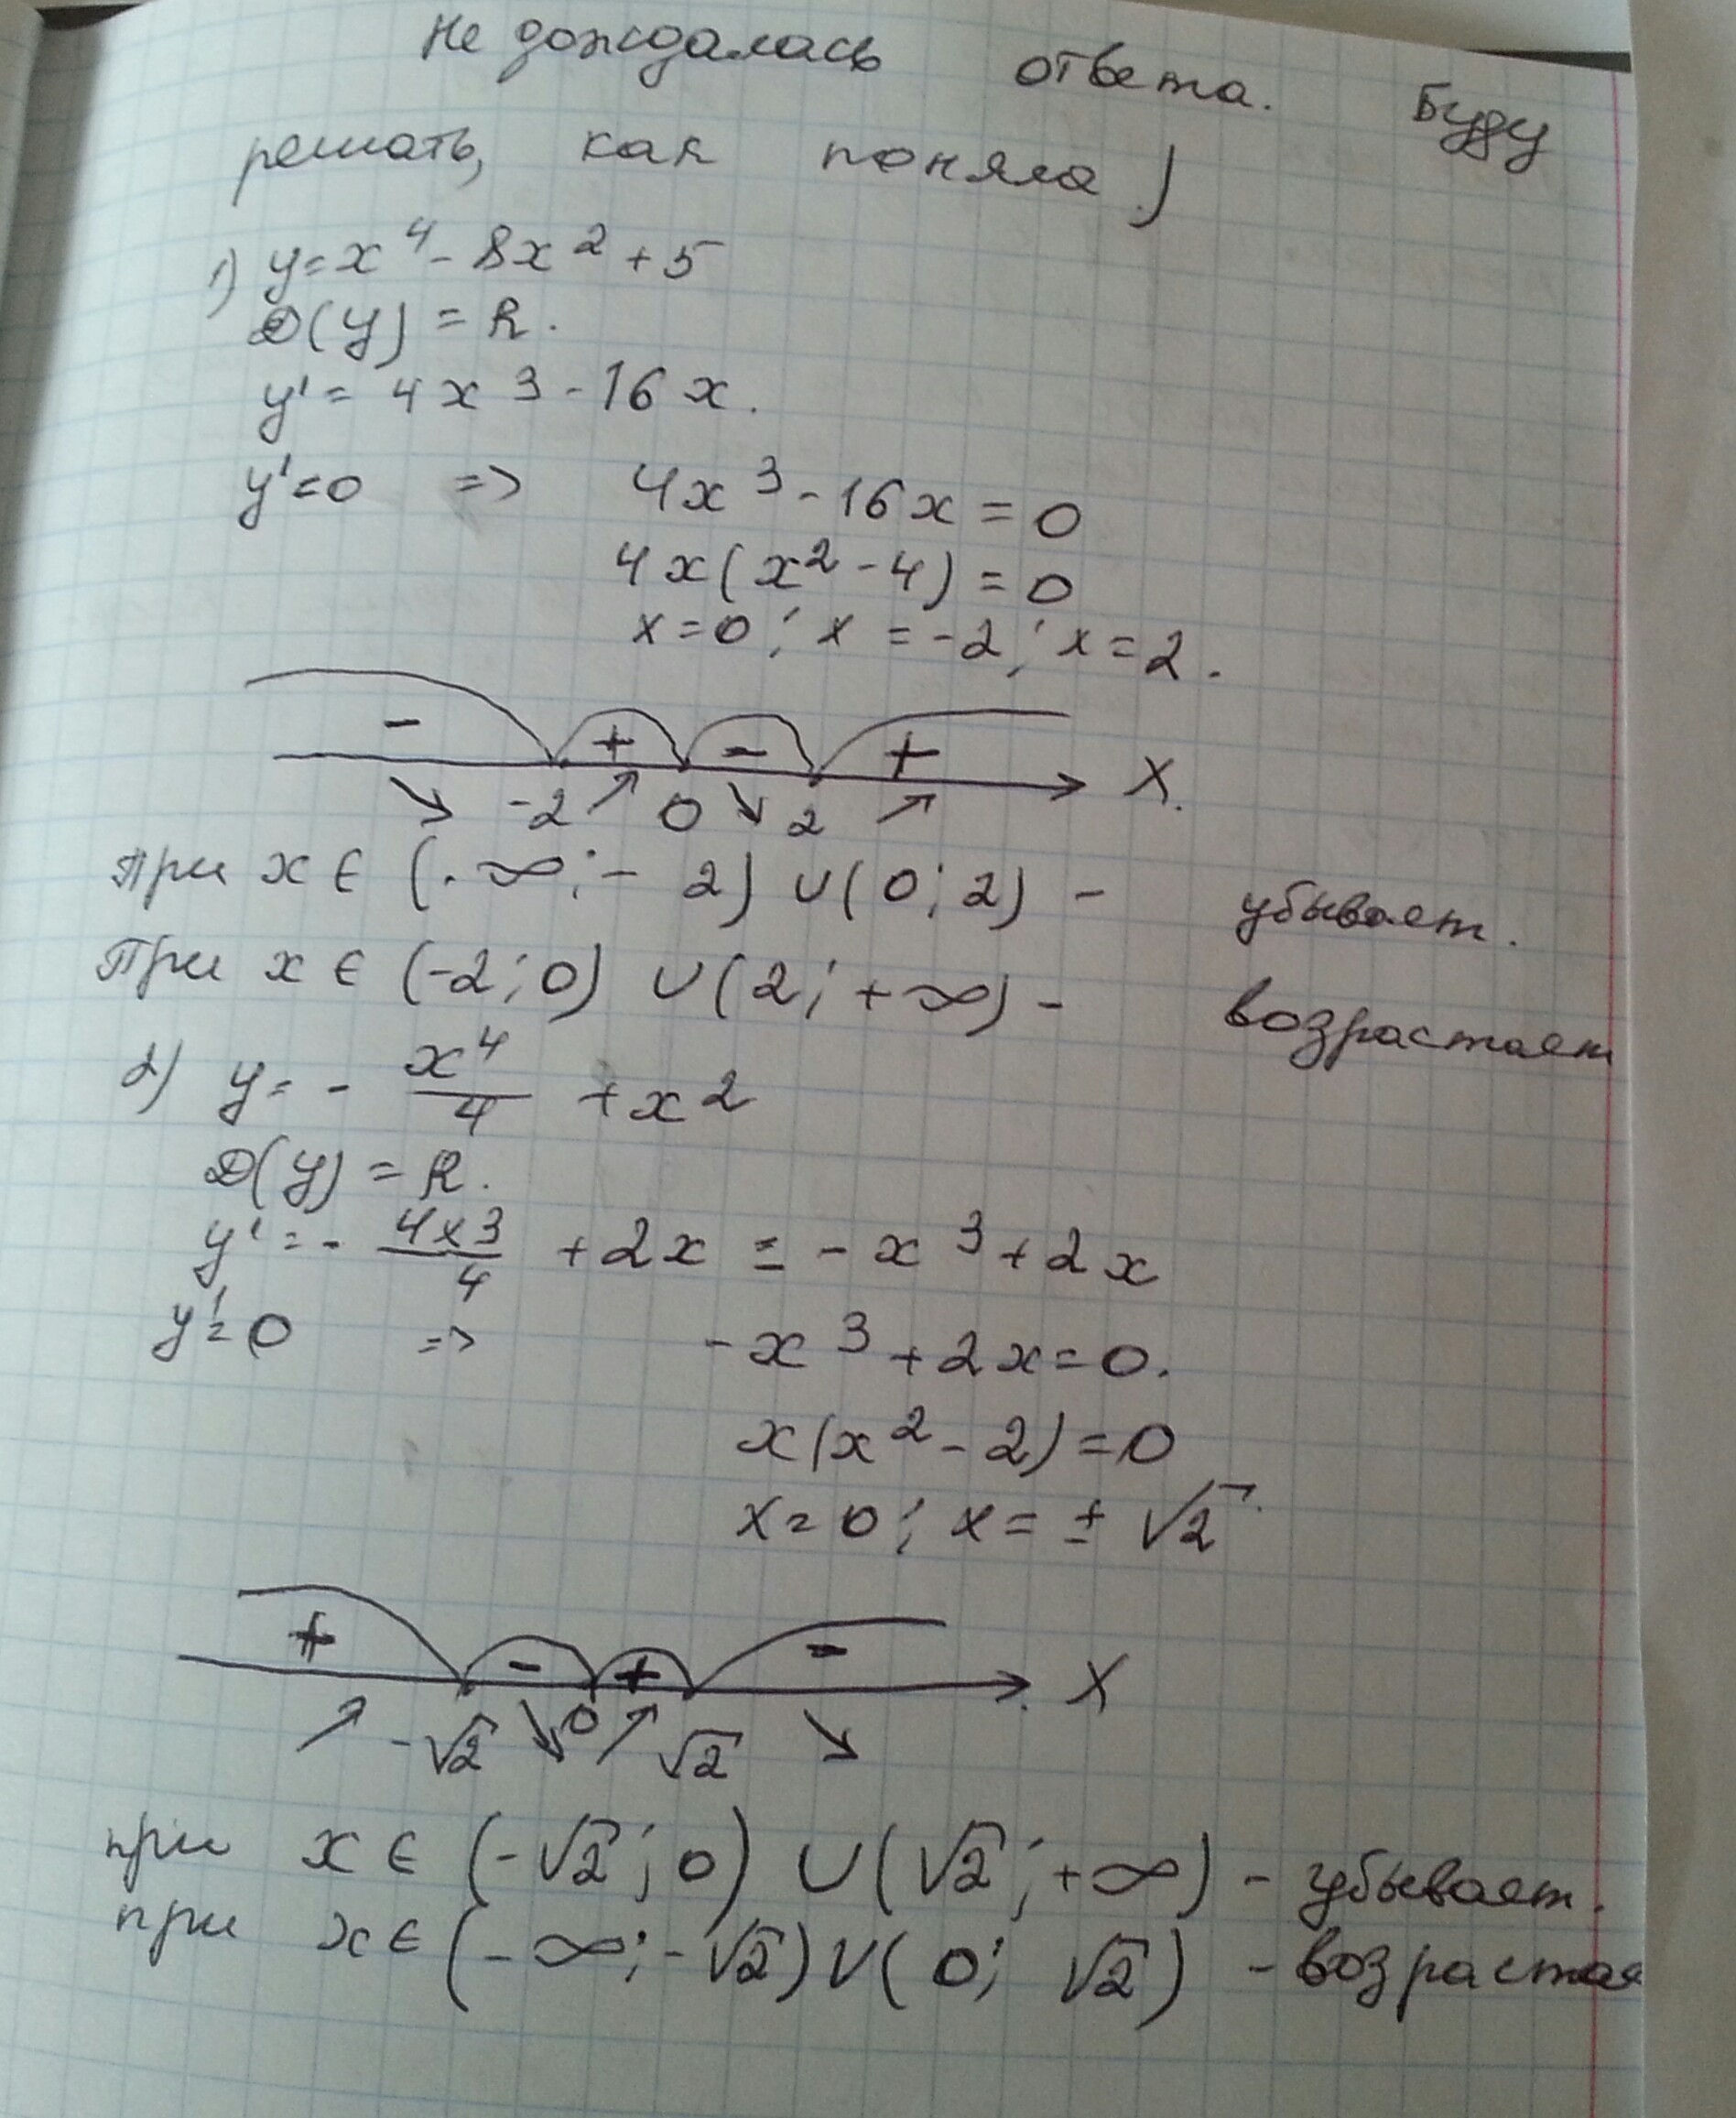 Не дождалась ответа. Буду
решать, как поняла )
1) y=x⁴-8x²+5
D(y)=R.
y'=4x³-16x.
y'=0 => 4x³-16x=0
4x(x²-4)=0
x=0; x=-2; x=2.
- + - + X.
-2 0 2
При x∈(-∞;-2)∪(0;2) - убывает.
При x∈(-2;0)∪(2;+∞) - возрастает
2) y=-x⁴/4+x²
D(y)=R.
y'=-4x³/4+2x=-x³+2x
y'=0 => -x³+2x=0.
x(x²-2)=0
x=0; x=±√2
+ - + - X
-√2 0 √2
при x∈(-√2;0)∪(√2;+∞) - убывает.
при x∈(-∞;-√2)∪(0;√2) - возрастае